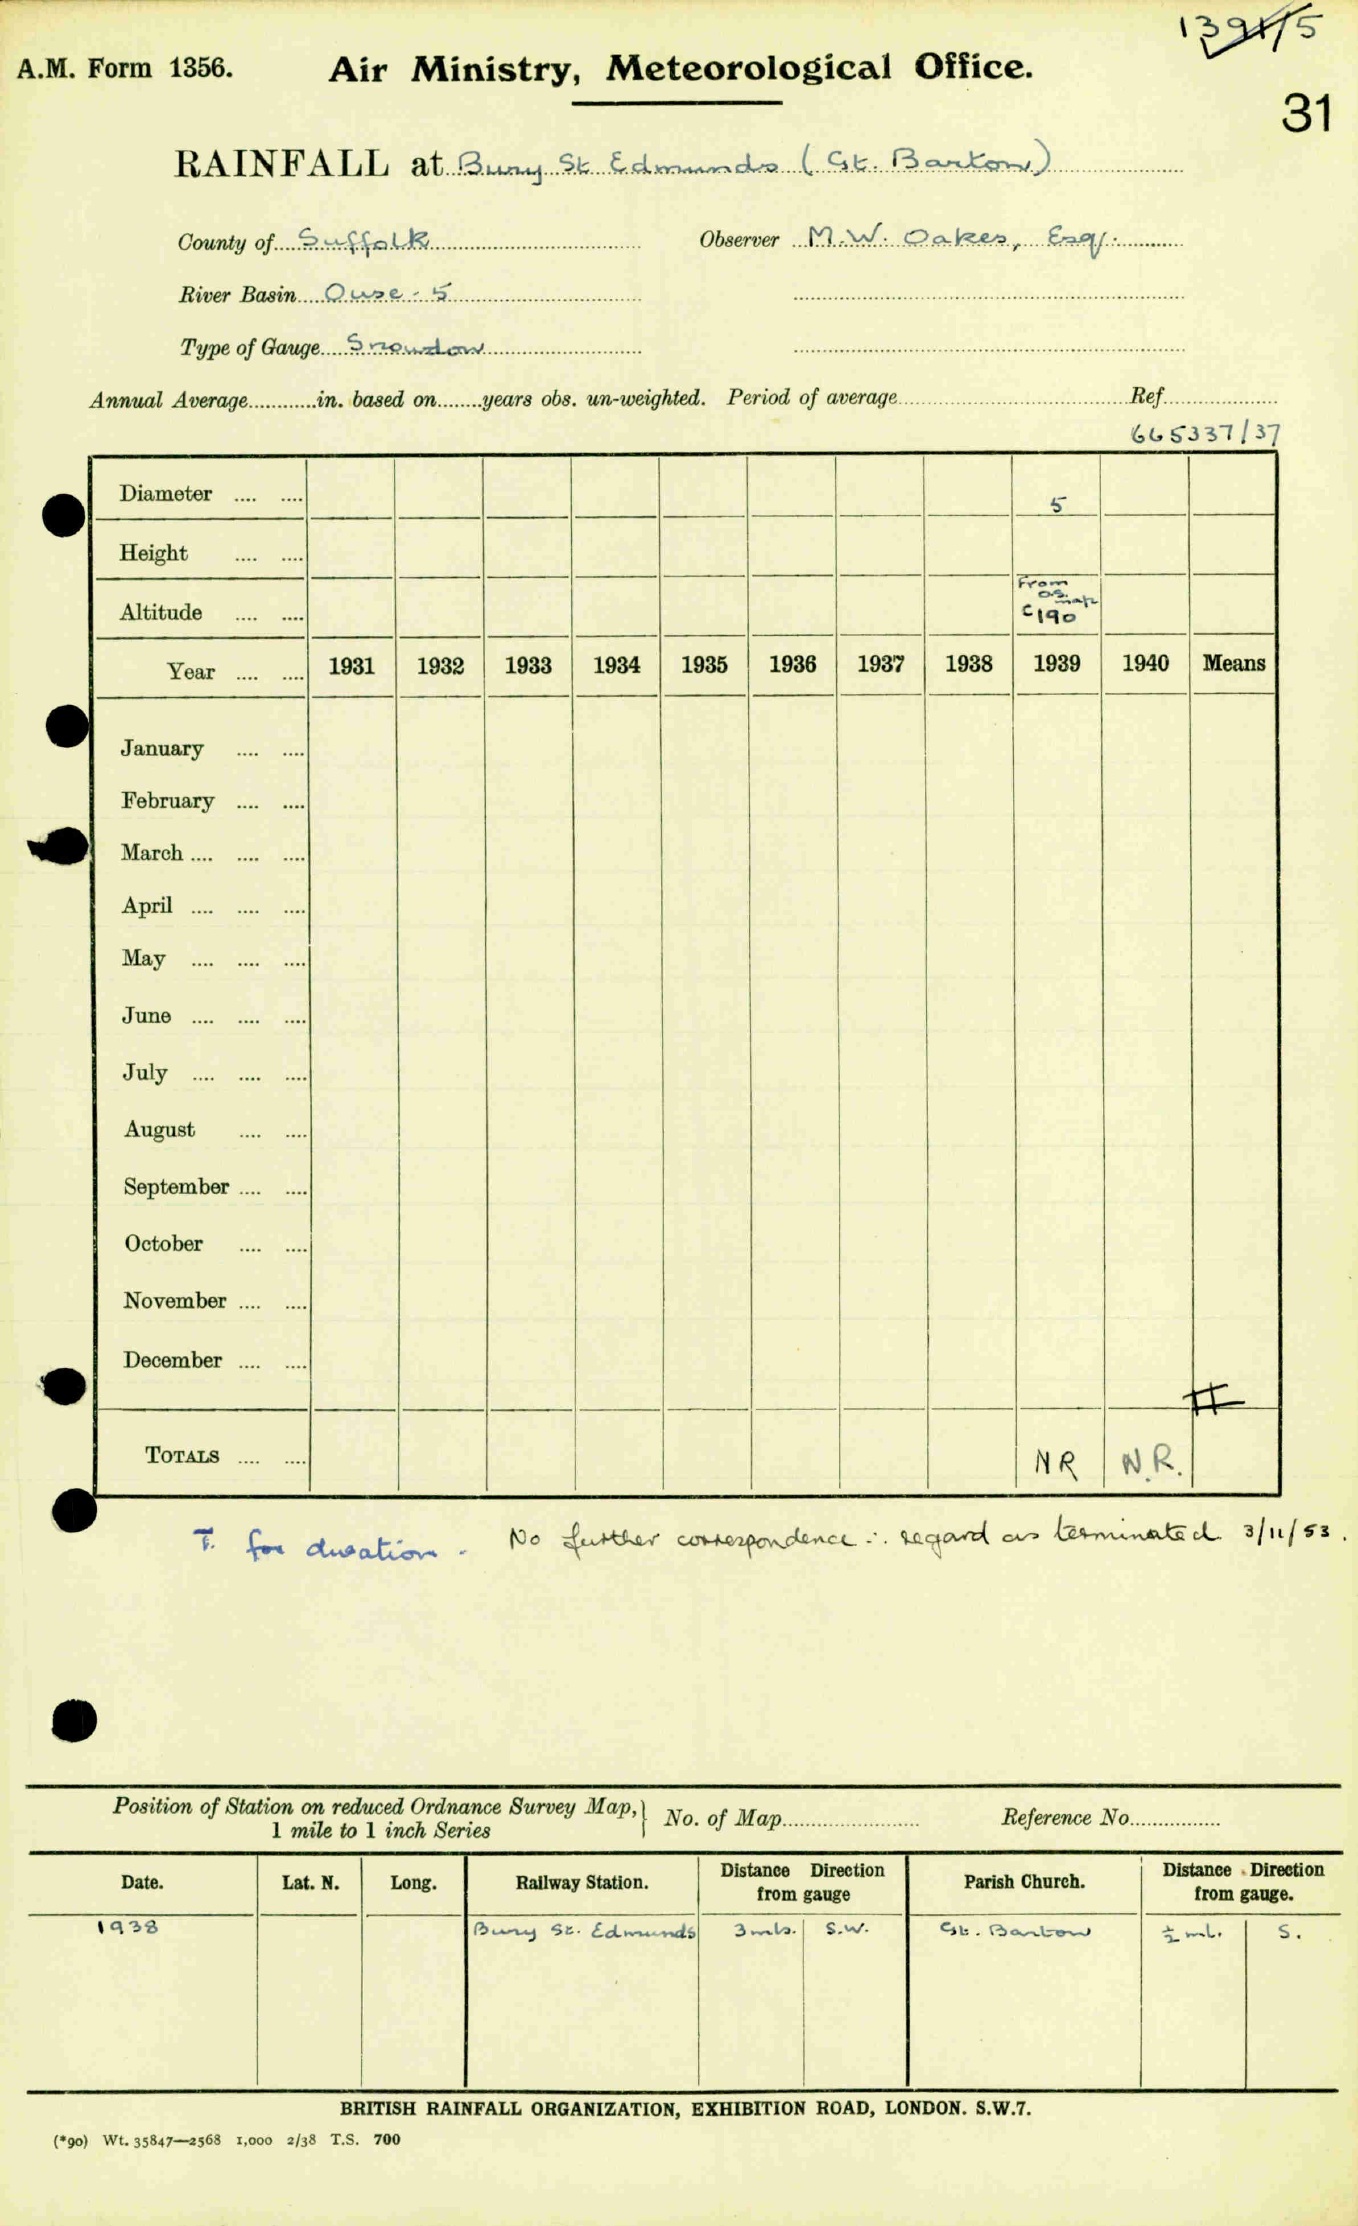 1391/5
A.M. Form 1356. Air Ministry, Meteorological Office.
31
RAINFALL at Bury St Edmunds (Gt. Barton)
County of Suffolk Observer M.W. Oakes, Esq.
River Basin Ouse - 5
Type of Gauge Snowdon
Annual Average............in. based on........years obs. un-weighted. Period of average............Ref............
665337/37
Diameter .... .... 5
Height .... ....
From
O.S.
map
Altitude .... .... c190
Year .... .... 1931 1932 1933 1934 1935 1936 1937 1938 1939 1940 Means
January .... ....
February .... ....
March .... .... ....
April .... .... ....
May .... .... ....
June .... .... ....
July .... .... ....
August .... ....
September .... ....
October .... ....
November .... ....
December .... ....
TOTALS .... .... NR N.R.
T. for duration. No further correspondence ∴ regard as terminated 3/11/53.
Position of Station on reduced Ordnance Survey Map, } No. of Map............ Reference No............
1 mile to 1 inch Series
Date. Lat. N. Long. Railway Station. Distance Direction from gauge Parish Church. Distance Direction from gauge.
1938 Bury St. Edmunds 3 mls. S.W. Gt. Barton ½ ml. S.
BRITISH RAINFALL ORGANIZATION, EXHIBITION ROAD, LONDON. S.W.7.
(*90) Wt. 35847—2568 1,000 2/38 T.S. 700